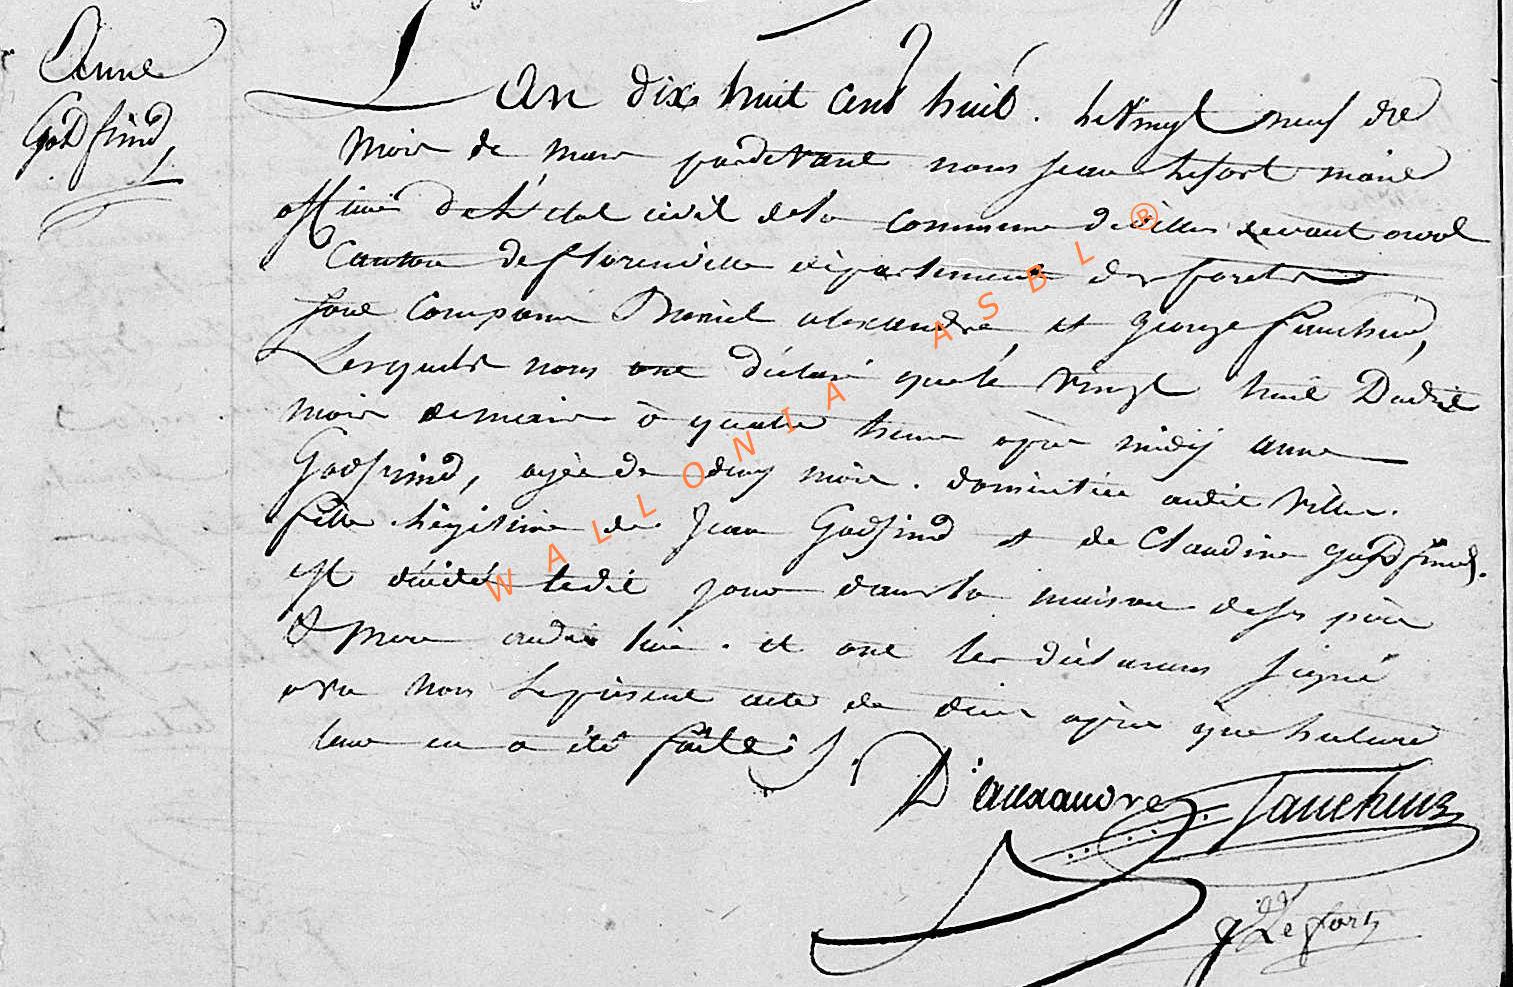 Anne
Godfrind,
L'An dix huit cent huit. le vingt neuf du
Mois de mars pardevant nous Jean Lefort maire
officier de L'état civil de la commune de villers devant orval
Canton de florenville département des forets
sont comparu Daniel alexandre et George faucheux,
Lesquels nous ont déclaré que le vingt huit Dudit
mois de mars à quatre heure apres midy anne
Godfrind, agée de deux mois. domiciliée audit Villers.
fille légitime de Jean Godfrind et de Claudine Godfrind.
est décédé ledit jour dans la maison de ses père
& mere audit lieu. et ont les déclarans signé
avec nous Le présent acte de décès après que lecture
leur en a été faite
D: alexandre
faucheux
J Lefort
WALLONIA ASBL ®